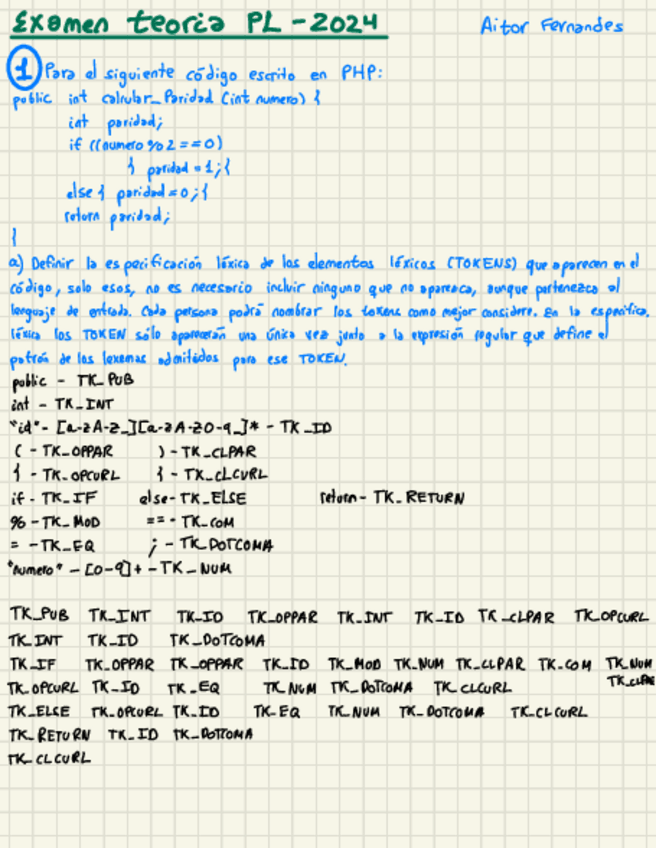 Examen teoria PL - 2024
Aitor Fernandes
1 Para el siguiente código escrito en PHP:
public int calcular_Paridad (int numero) {
int paridad;
if ((numero % 2 == 0)
{ paridad = 1; {
else { paridad = 0; {
return paridad;
}
a) Definir la especificación léxica de los elementos léxicos (TOKENS) que aparecen en el
código, solo esos, no es necesario incluir ninguno que no aparezca, aunque pertenezca al
lenguaje de entrada. Cada persona podrá nombrar los tokens como mejor considere. En la especifica.
léxica los TOKEN sólo aparecerán una única vez junto a la expresión regular que define el
patrón de los lexemas admitidos para ese TOKEN.
public - TK_PUB
int - TK_INT
"id" - [a-zA-Z_][a-zA-Z0-9_]* - TK_ID
( - TK_OPPAR ) - TK_CLPAR
{ - TK_OPCURL } - TK_CLCURL
if - TK_IF else - TK_ELSE return - TK_RETURN
% - TK_MOD == - TK_COM
= - TK_EQ ; - TK_DOTCOMA
"numero" - [0-9]+ - TK_NUM
TK_PUB TK_INT TK_ID TK_OPPAR TK_INT TK_ID TK_CLPAR TK_OPCURL
TK_INT TK_ID TK_DOTCOMA
TK_IF TK_OPPAR TK_OPPAR TK_ID TK_MOD TK_NUM TK_CLPAR TK_COM TK_NUM
TK_CLPAR
TK_OPCURL TK_ID TK_EQ TK_NUM TK_DOTCOMA TK_CLCURL
TK_ELSE TK_OPCURL TK_ID TK_EQ TK_NUM TK_DOTCOMA TK_CLCURL
TK_RETURN TK_ID TK_DOTCOMA
TK_CLCURL